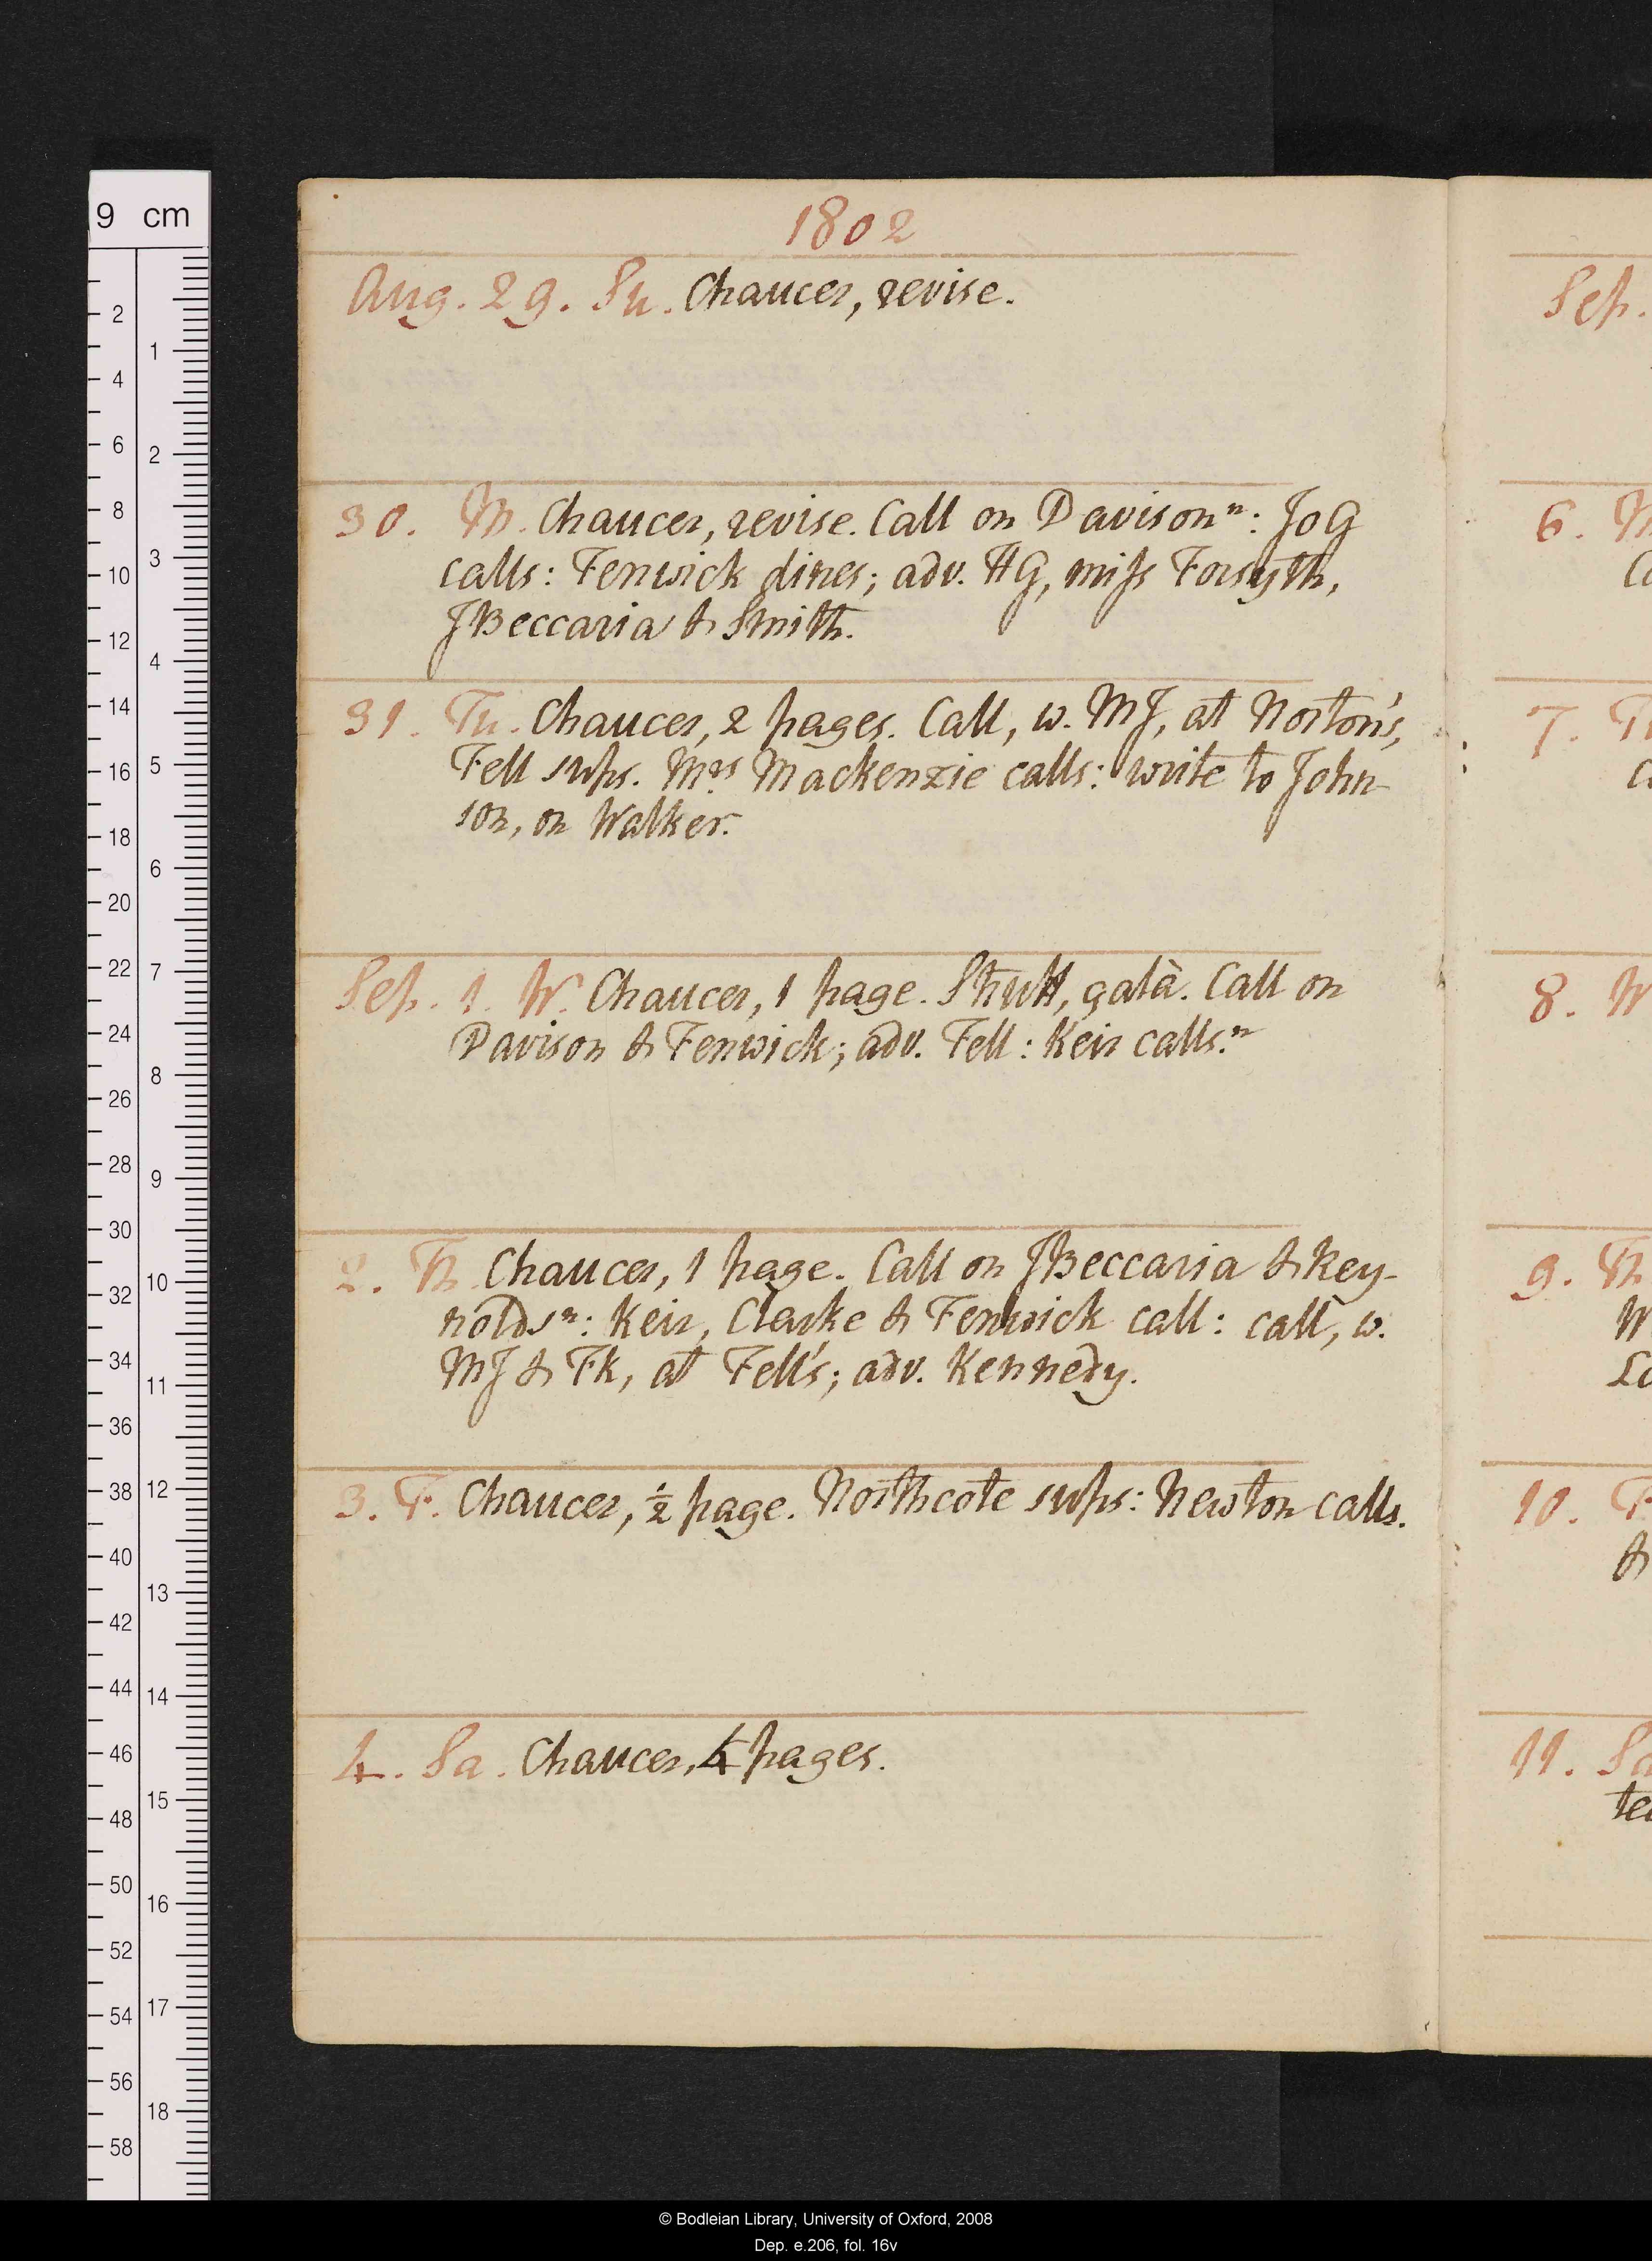 1802
Aug. 29. Su. Chaucer, revise.
30. M. Chaucer, revise. Call on Davison ⁿ: JoG
calls: Fenwick dines; adv. HG, miss Forsyth,
JBeccaria & Smith.
31. Tu. Chaucer, 2 pages. Call, w. MJ, at Norton's,
Fell sups. Mrs Mackenzie calls: write to John-
son, on Walker.
Sep. 1. W. Chaucer, 1 page. Strutt, qalà. Call on
Davison & Fenwick; adv. Fell: Keir calls.ⁿ
2. Th. Chaucer, 1 page. Call on JBeccaria & Rey-
nolds ⁿ: Keir, Clarke & Fenwick call: call, w.
MJ & Fk, at Fell's; adv. Kennedy.
3. F. Chaucer, ½ page. Northcote sups: Newton calls.
4. Sa. Chaucer, 4 pages.
Sep.
6. M
7. Tu
8. W
9. Th
W
10. F
&
11. Sa
9 cm
2
4
6
8
10
12
14
16
18
20
22
24
26
28
30
32
34
36
38
40
42
44
46
48
50
52
54
56
58
1
2
3
4
5
6
7
8
9
10
11
12
13
14
15
16
17
18
© Bodleian Library, University of Oxford, 2008
Dep. e.206, fol. 16v